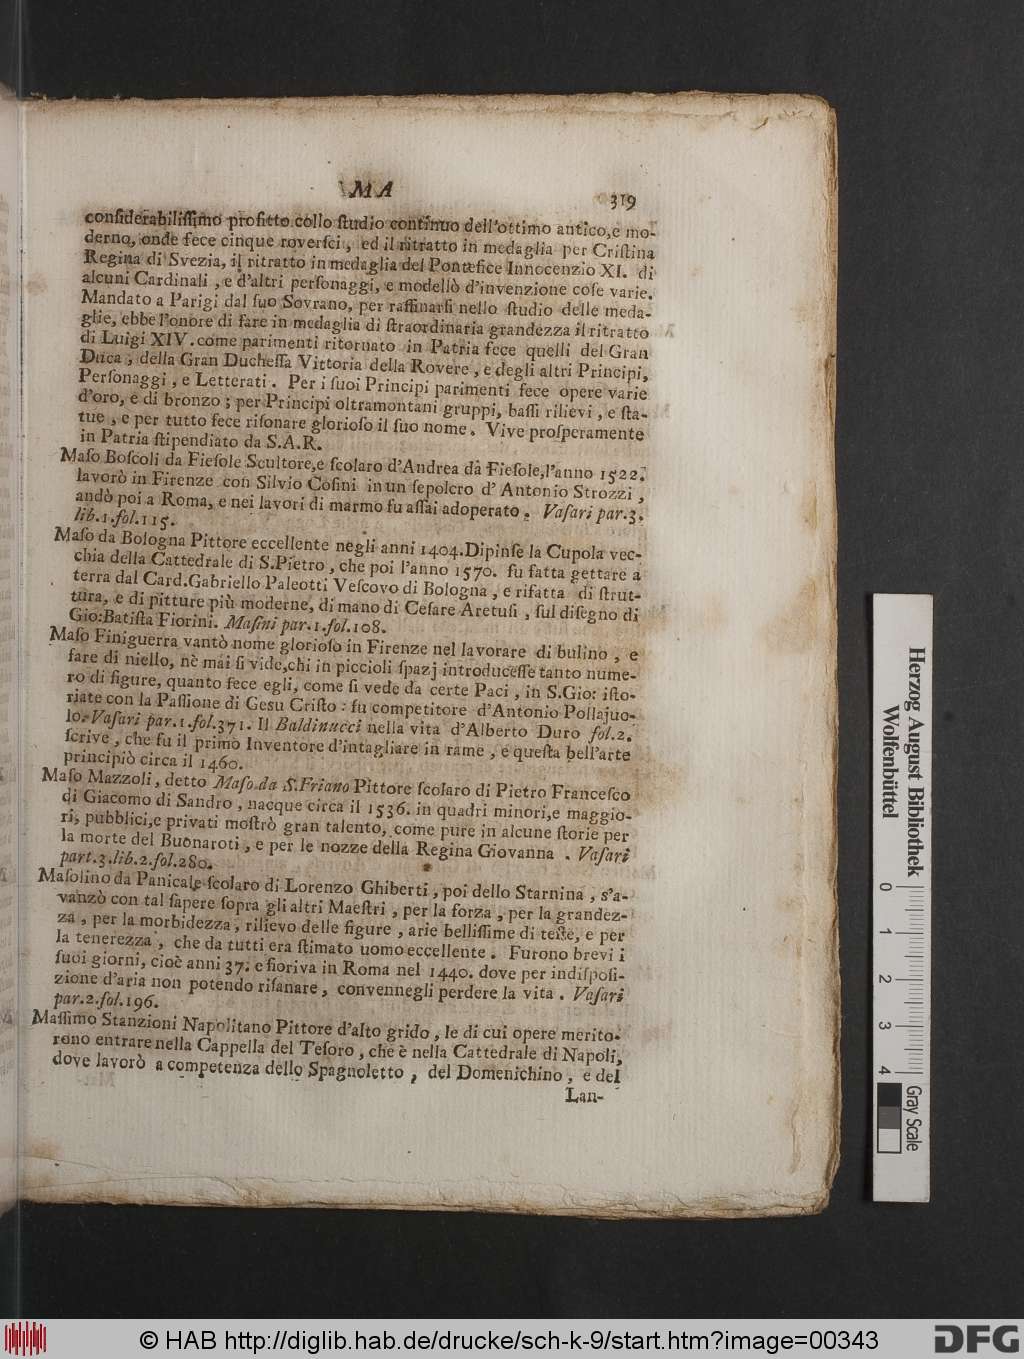 MA 319
conſiderabiliſſimo profitto collo ſtudio continuo dell'ottimo antico, e mo-
derno, onde fece cinque roverſci, ed il ritratto in medaglia per Criſtina
Regina di Svezia, il ritratto in medaglia del Pontefice Innocenzio XI. di
alcuni Cardinali, e d'altri perſonaggi, e modellò d'invenzione coſe varie.
Mandato a Parigi dal ſuo Sovrano, per raffinarſi nello ſtudio delle meda-
glie, ebbe l'onore di fare in medaglia di ſtraordinaria grandezza il ritratto
di Luigi XIV. come parimenti ritornato in Patria fece quelli del Gran
Duca, della Gran Ducheſſa Vittoria della Rovere, e degli altri Principi,
Perſonaggi, e Letterati. Per i ſuoi Principi parimenti fece opere varie
d'oro, e di bronzo; per Principi oltramontani gruppi, baſſi rilievi, e ſta-
tue, e per tutto fece riſonare glorioſo il ſuo nome. Vive proſperamente
in Patria ſtipendiato da S.A.R.
Maſo Boſcoli da Fieſole Scultore, e ſcolaro d'Andrea da Fieſole, l'anno 1522.
lavorò in Firenze con Silvio Coſini in un ſepolcro d'Antonio Strozzi,
andò poi a Roma, e nei lavori di marmo fu aſſai adoperato. Vaſari par.3.
lib.1.fol.115.
Maſo da Bologna Pittore eccellente negli anni 1404. Dipinſe la Cupola vec-
chia della Cattedrale di S.Pietro, che poi l'anno 1570. fu fatta gettare a
terra dal Card. Gabriello Paleotti Veſcovo di Bologna, e rifatta di ſtrut-
tura, e di pitture più moderne, di mano di Ceſare Aretuſi, ſul diſegno di
Gio: Batiſta Fiorini. Maſini par.1.fol.108.
Maſo Finiguerra vantò nome glorioſo in Firenze nel lavorare di bulino, e
fare di niello, nè mai ſi vide, chi in piccioli ſpazj introduceſſe tanto nume-
ro di figure, quanto fece egli, come ſi vede da certe Paci, in S.Gio: iſto-
riate con la Paſſione di Gesu Criſto: fu competitore d'Antonio Pollajuo-
lo. Vaſari par.1.fol.371. Il Baldinucci nella vita d'Alberto Duro fol.2.
ſcrive, che fu il primo Inventore d'intagliare in rame, e queſta bell'arte
principiò circa il 1460.
Maſo Mazzoli, detto Maſo da S.Friano Pittore ſcolaro di Pietro Franceſco
di Giacomo di Sandro, nacque circa il 1536. in quadri minori, e maggio-
ri, pubblici, e privati moſtrò gran talento, come pure in alcune ſtorie per
la morte del Buonaroti, e per le nozze della Regina Giovanna. Vaſari
part.3.lib.2.fol.280.
Maſolino da Panicale ſcolaro di Lorenzo Ghiberti, poi dello Starnina, s'a-
vanzò con tal ſapere ſopra gli altri Maeſtri, per la forza, per la grandez-
za, per la morbidezza, rilievo delle figure, arie belliſſime di teſte, e per
la tenerezza, che da tutti era ſtimato uomo eccellente. Furono brevi i
ſuoi giorni, cioè anni 37. e fioriva in Roma nel 1440. dove per indiſpoſi-
zione d'aria non potendo riſanare, convennegli perdere la vita. Vaſari
par.2.fol.196.
Maſſimo Stanzioni Napolitano Pittore d'alto grido, le di cui opere merito-
rono entrare nella Cappella del Teſoro, che è nella Cattedrale di Napoli,
dove lavorò a competenza dello Spagnoletto, del Domenichino, e del
Lan-
Herzog August Bibliothek
Wolfenbüttel
0 1 2 3 4
Gray Scale
© HAB http://diglib.hab.de/drucke/sch-k-9/start.htm?image=00343
DFG